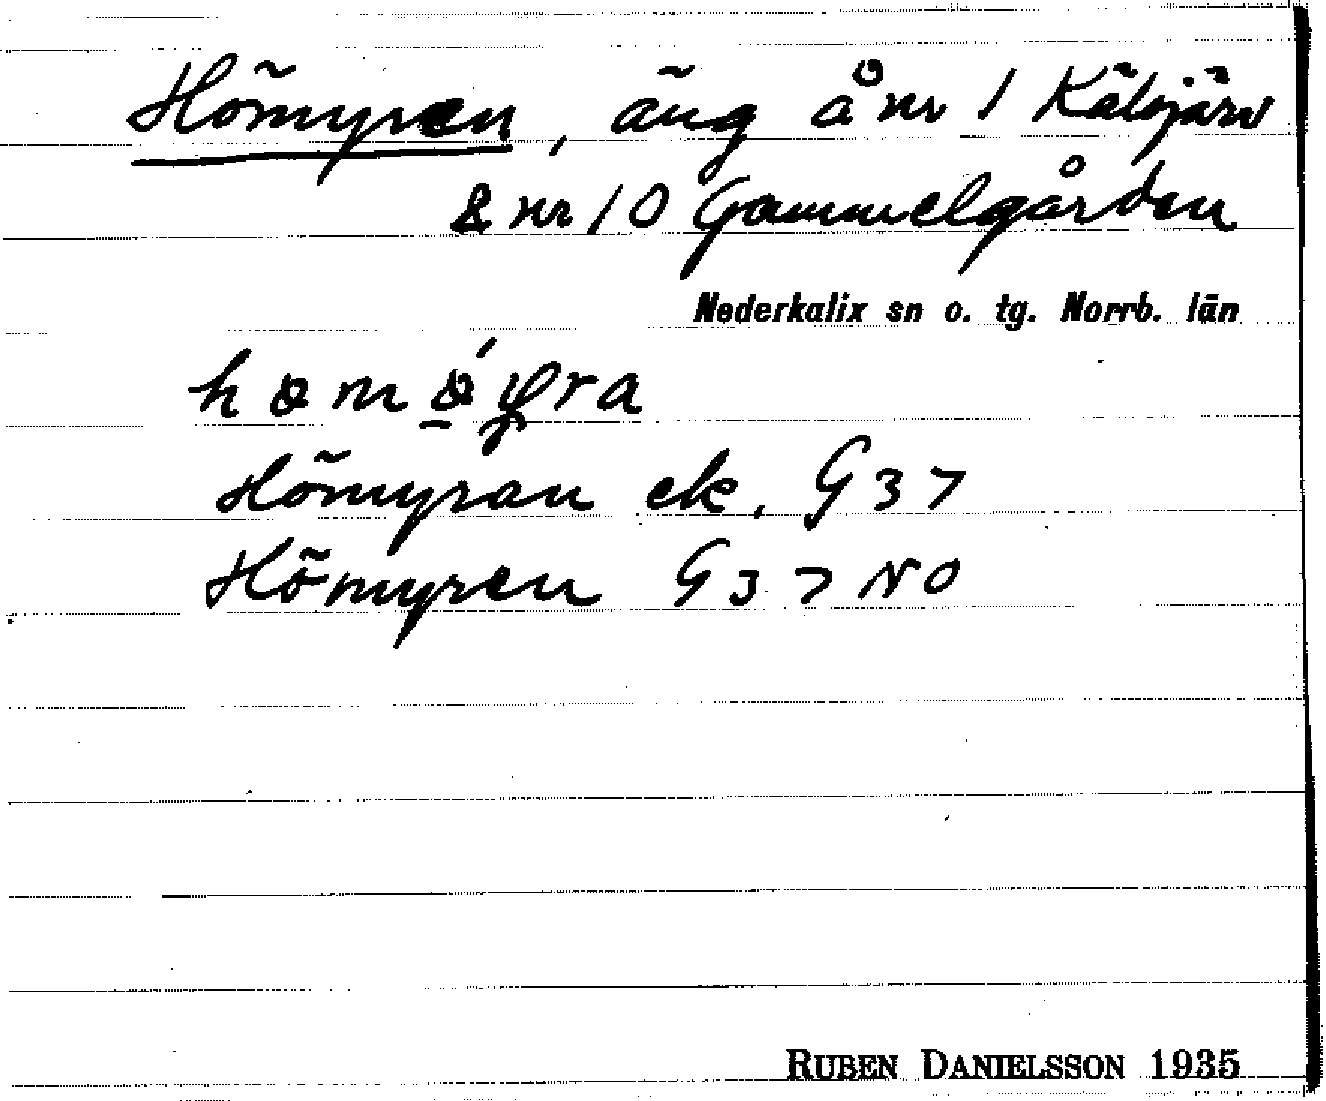 Hömyren, äng å nr 1 Kälsjärv
& nr 10 Gammelgården
Nederkalix sn o. tg. Norrb. län
Hömyran ek. G37
Hömyren G37 NO
RUBEN DANIELSSON 1935